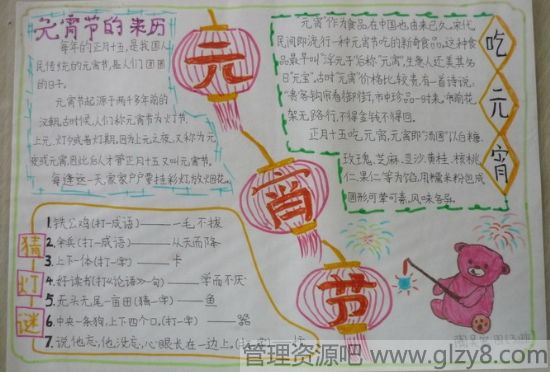 元宵节的来历
每年的正月十五,是我国人
民传统的元宵节,是人们团圆
的日子。
元宵节起源于两千多年前的
汉朝,古时候,人们称元宵节为灯节、
上元,灯夕或者灯期,因为上元之夜,又称为元
夜或元宵,因此后人才管正月十五又叫元宵节。
每逢这一天家家户户要挂彩灯,放烟花。
元
宵
节
元宵作为食品,在中国也由来已久,宋代,
民间即流行一种元宵节吃的新奇食品,这种食
品最早叫"浮元子"后称"元宵,生意人还美其名
曰"元宝",古时"元宵"价格比较贵,有一首诗说:
"贵客钩帘看御街,市中珍品一时来,帘前花
架无路行,不得金钱不得回。
正月十五吃元宵,元宵即"汤圆"以白糖、
玫瑰,芝麻,豆沙,黄桂,核桃
仁,果仁等为馅,用糯米粉包成
圆形可荤可素,风味各异。
吃
元
宵
猜
灯
谜
1.铁公鸡(打一成语)——一毛不拔
2.伞兵(打一成语)——从天而降
3.上下一体(打一字)——卡
4.好读书(打《论语》一句)——学而不厌
5.无头无尾一亩田(猜一字)——鱼
6.中央一条狗,上下四个口,(打一字)——器
7.说他忘,他没忘,心眼长在一边上,(打一字)
管理资源吧 www.glzy8.com